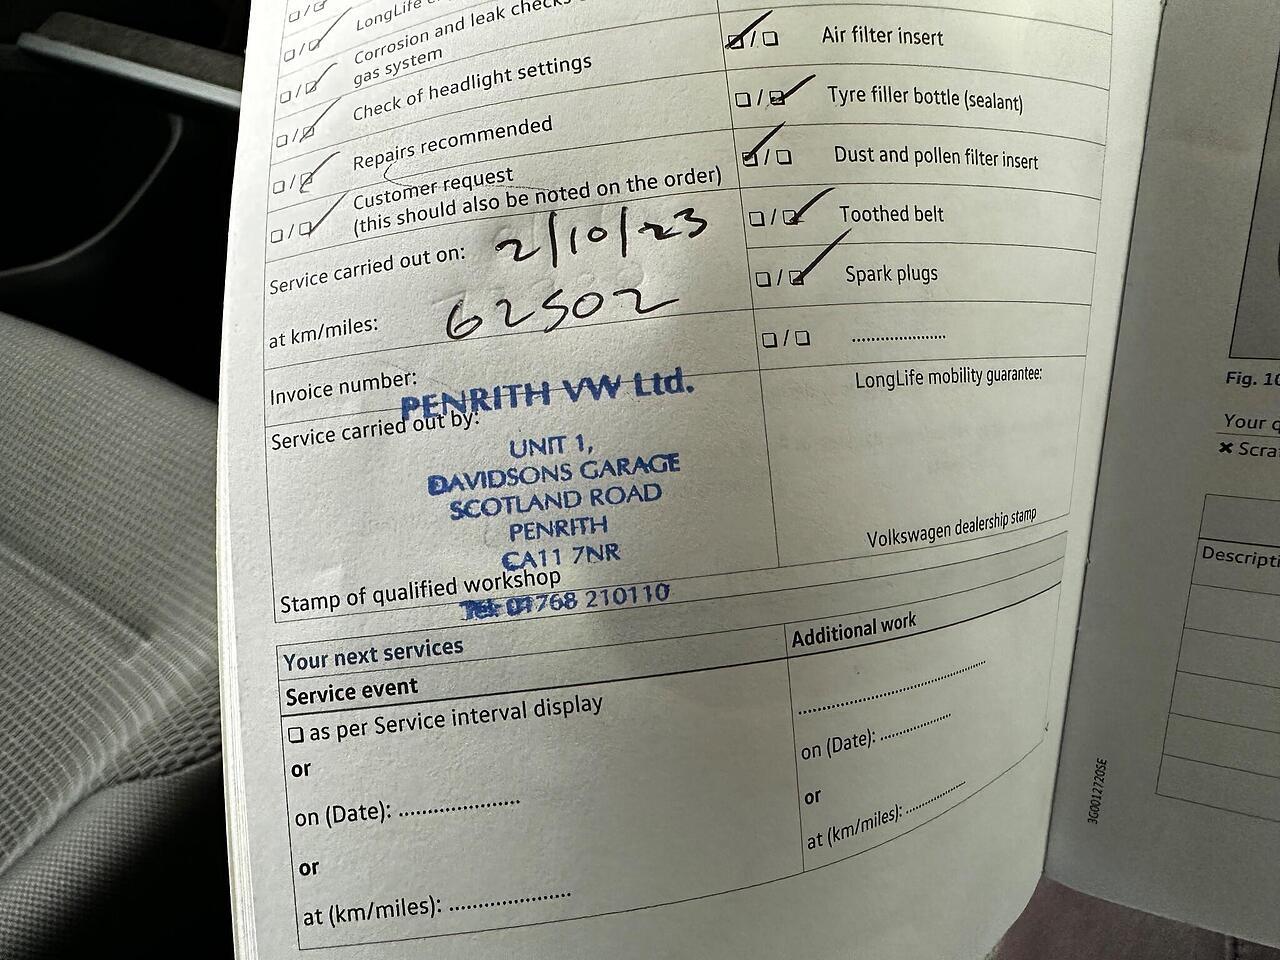 LongLife
Corrosion and leak checks
gas system
Check of headlight settings
Repairs recommended
Customer request
(this should also be noted on the order)
Service carried out on: 2/10/23
at km/miles: 62502
Invoice number:
PENRITH VW Ltd.
Service carried out by:
UNIT 1,
DAVIDSONS GARAGE
SCOTLAND ROAD
PENRITH
CA11 7NR
Stamp of qualified workshop
Tel: 01768 210110
Air filter insert
Tyre filler bottle (sealant)
Dust and pollen filter insert
Toothed belt
Spark plugs
....................
LongLife mobility guarantee:
Volkswagen dealership stamp
Your next services
Service event
as per Service interval display
or
on (Date): ....................
or
at (km/miles): ....................
Additional work
........................................
on (Date): ...............
or
at (km/miles): ...............
3G0012720SE
Fig. 10
Your
✖ Scra
Descripti